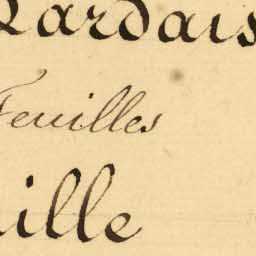 Rardais
Feuilles
ille